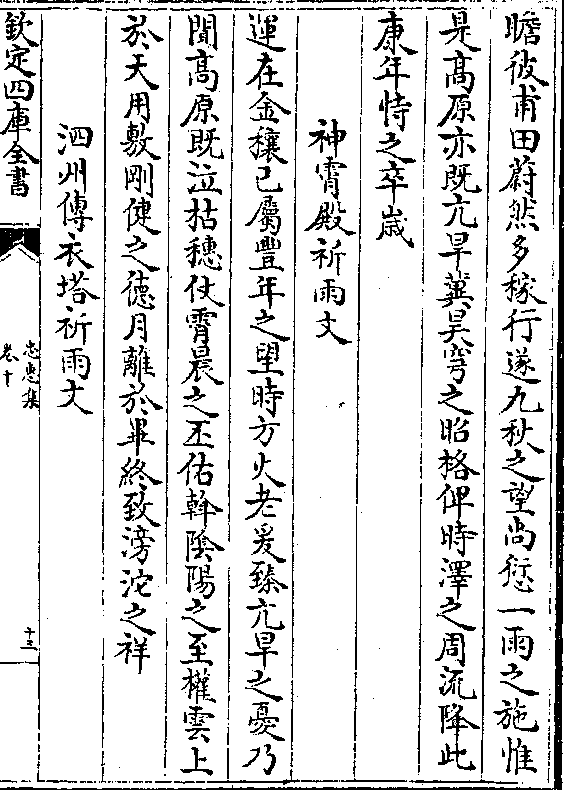 瞻彼甫田蔚然多稼行遂九秋之望尚愆一雨之施惟
是高原亦既亢旱冀昊穹之昭格俾時澤之周流降此
康年恃之卒歲
神霄殿祈雨文
運在金穰已屬豐年之望時方火老爰臻亢旱之憂乃
聞高原既泣枯穗仗霄晨之丕佑斡陰陽之至權雲上
於天用敷剛健之德月離於畢終致滂沱之祥
泗州傳衣塔祈雨文
欽定四庫全書
忠惠集
卷十
十三